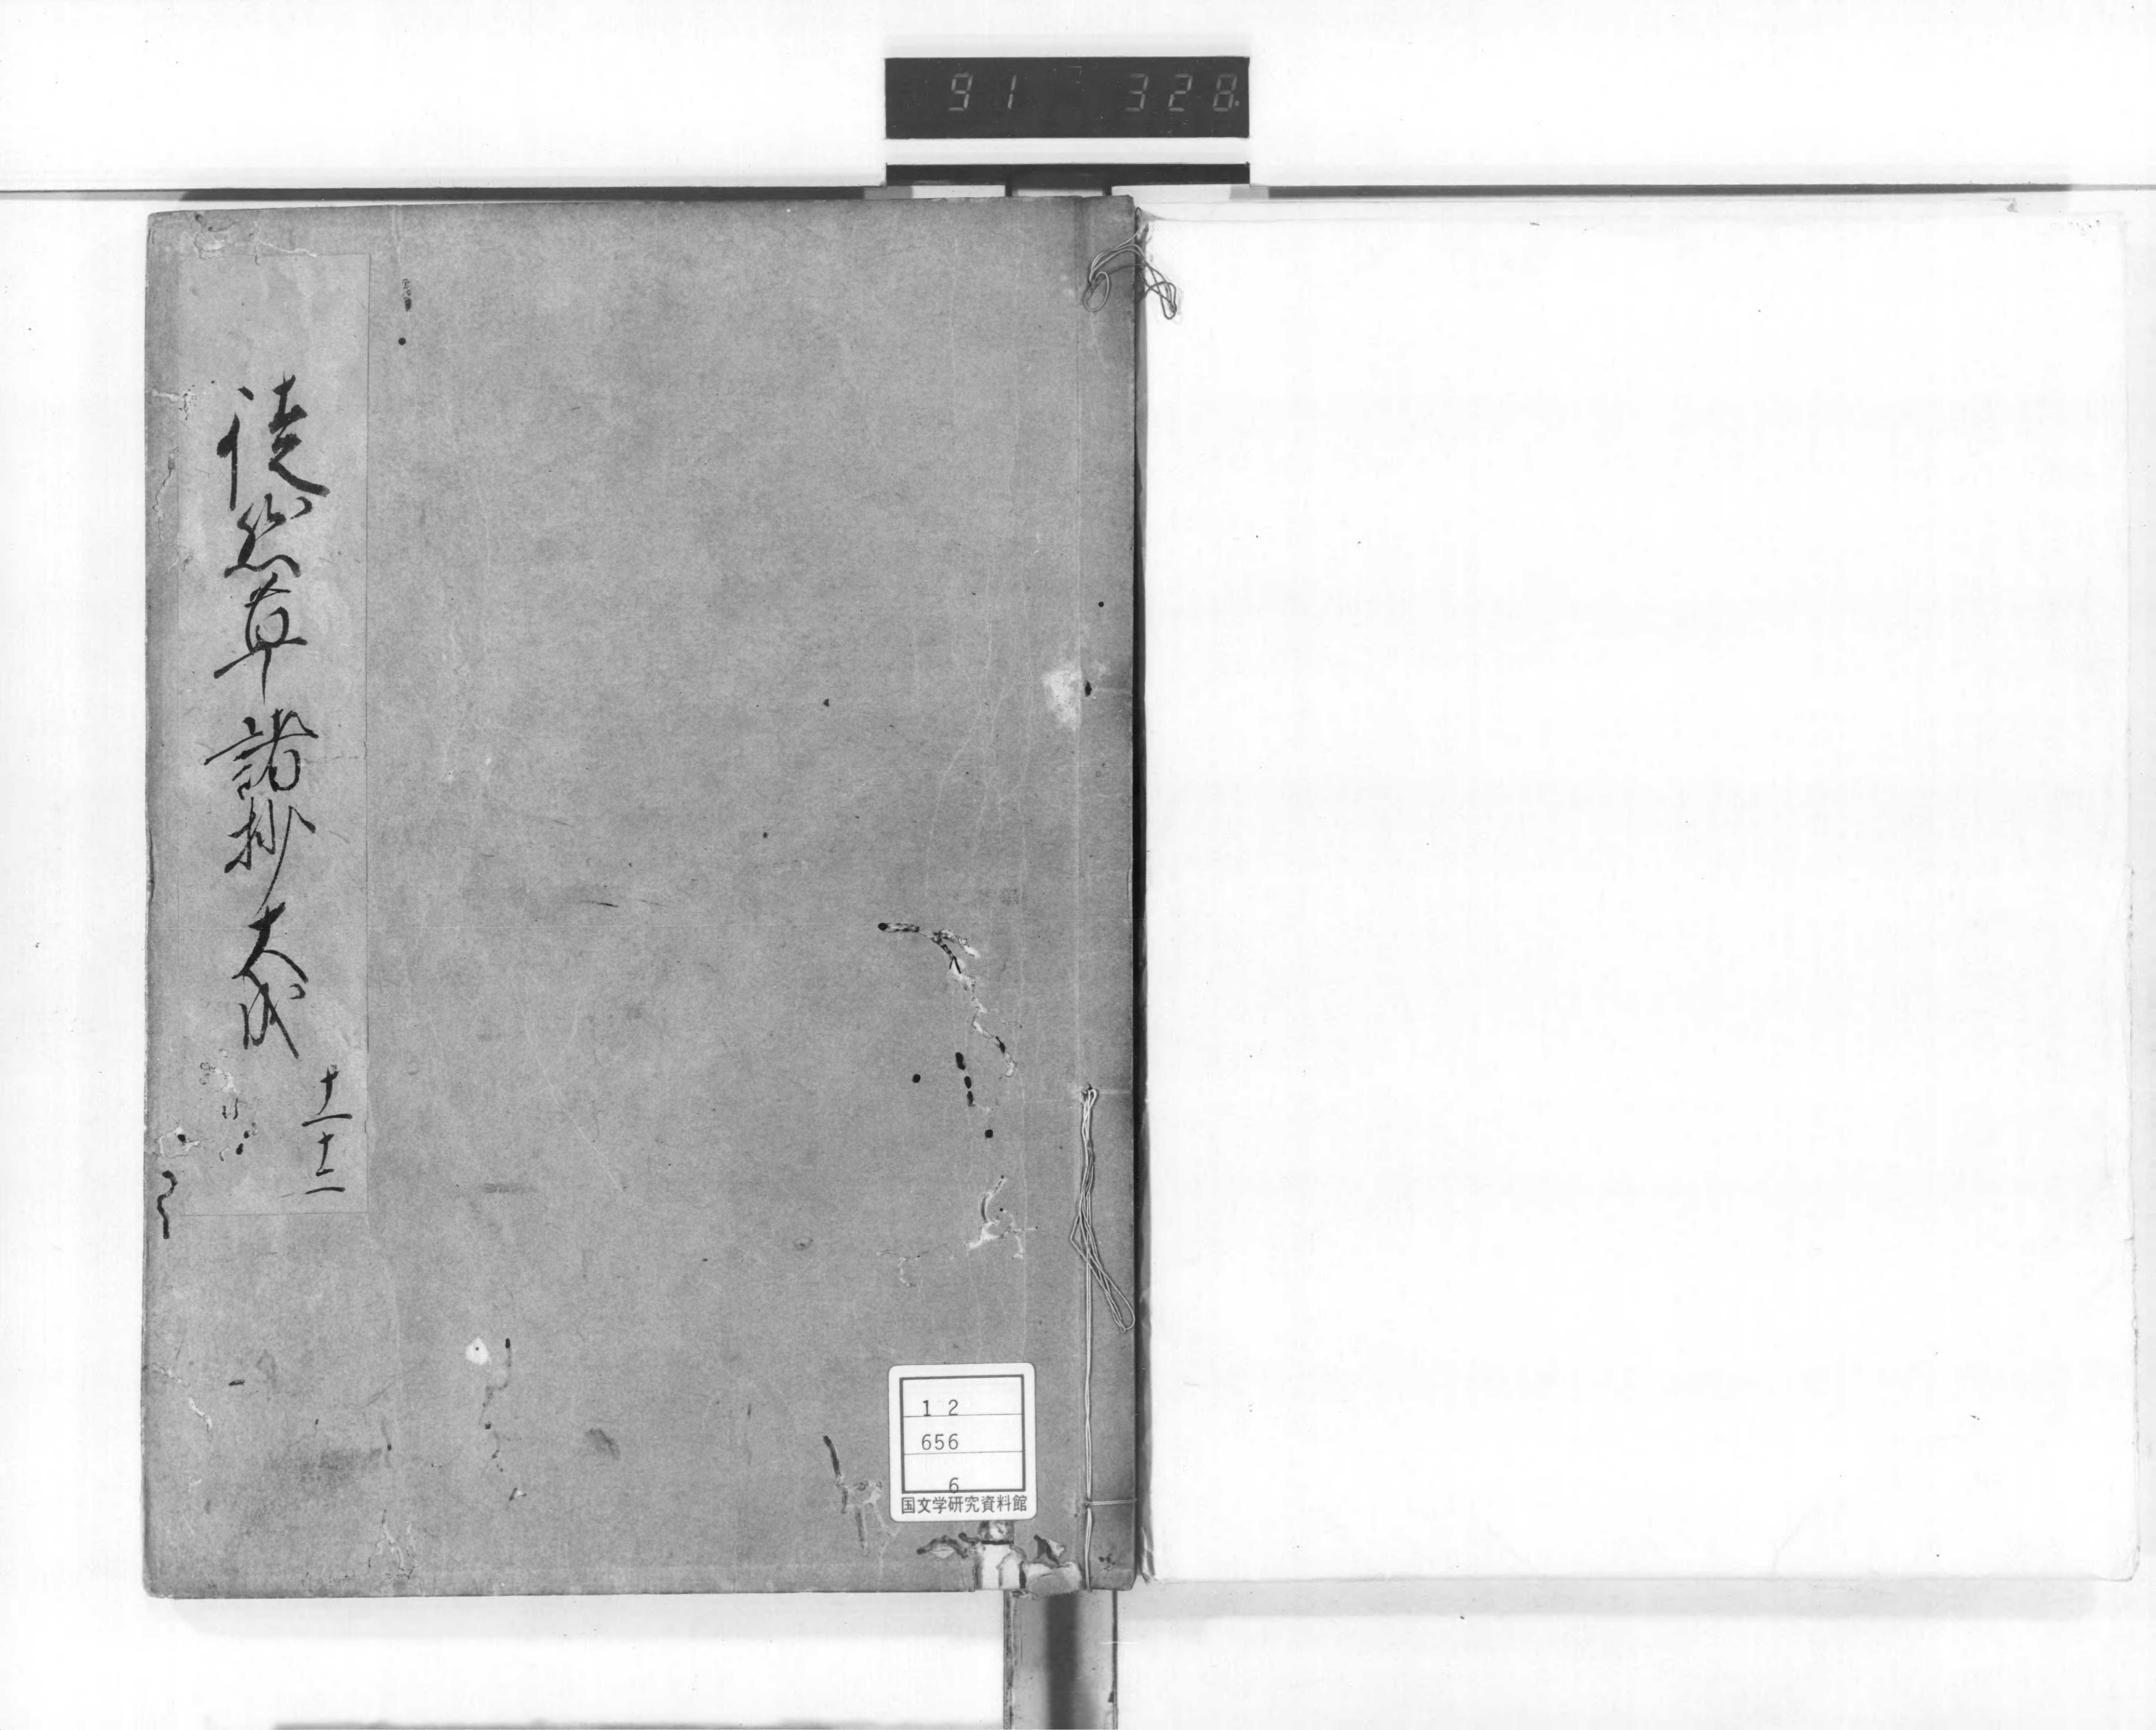 91 328
徒然草諸抄大成
十一
十二
12
656
6
国文学研究資料館